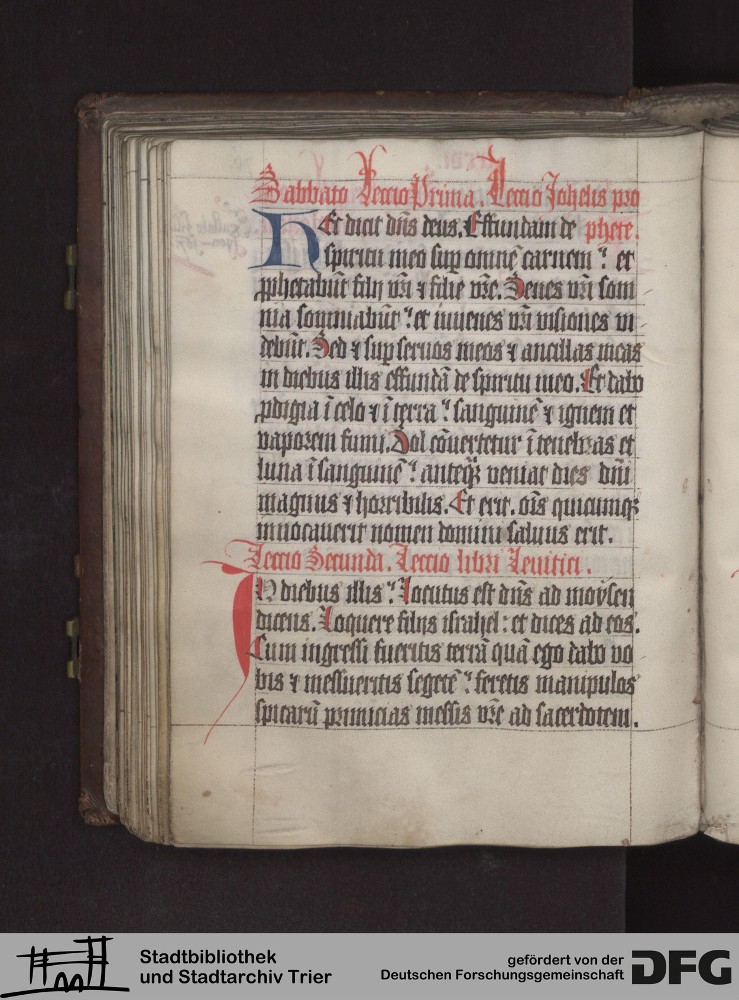 Sabbato Leccio Prima. Leccio Johelis pro
HEc dicit dns deus. Effundam de phete.
spiritu meo sup omnē carnem ⁊ et
ꝓphetabūt filij vri ⁊ filie vre. Senes vri som
nia sompniabūt ⁊ et iuuenes vri visiones vi
debūt. Sed ⁊ sup seruos meos ⁊ ancillas meas
in diebus illis effundā de spiritu meo. Et dabo
ꝓdigia ī celo ⁊ ī terra ⁊ sanguinē ⁊ ignem et
vaporem fumi. Sol cōuertetur ī tenebras et
luna ī sanguinē ⁊ anteqꝫ veniat dies dni
magnus ⁊ horribilis. Et erit. ois quicumqꝫ
inuocauerit nomen domini saluus erit.
Leccio Secunda. Leccio libri Leuitici.
IN diebus illis ⁊ Locutus est dns ad moysen
dicens. Loquere filijs israhel : et dices ad eos.
Cum ingressi fueritis terrā quā ego dabo vo
bis ⁊ messueritis segetē ⁊ feretis manipulos
spicarū primicias messis vre ad sacerdotem.
Stadtbibliothek
und Stadtarchiv Trier
gefördert von der
Deutschen Forschungsgemeinschaft
DFG